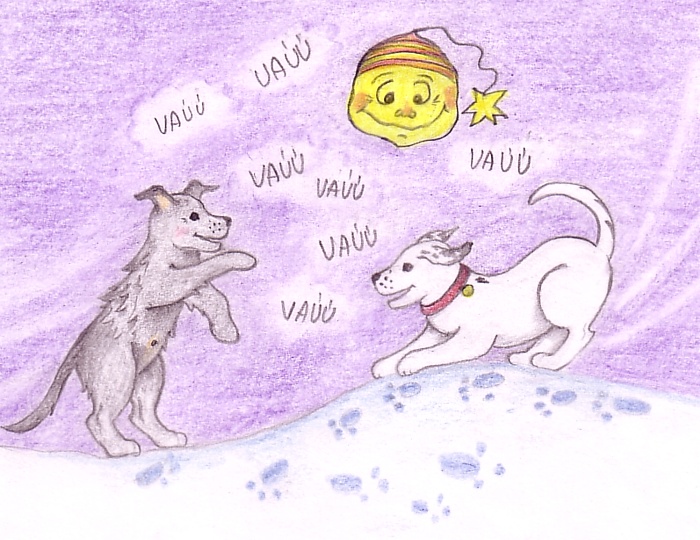 VAÚÚ
VAÚÚ
VAÚÚ
VAÚÚ
VAÚÚ
VAÚÚ
VAÚÚ